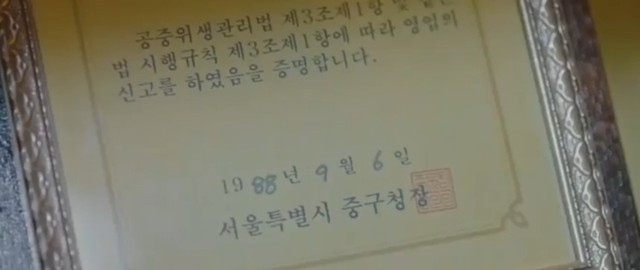 공중위생관리법 제3조제1항 및 같은
법 시행규칙 제3조제1항에 따라 영업의
신고를 하였음을 증명합니다.
1988년 9월 6일
서울특별시 중구청장